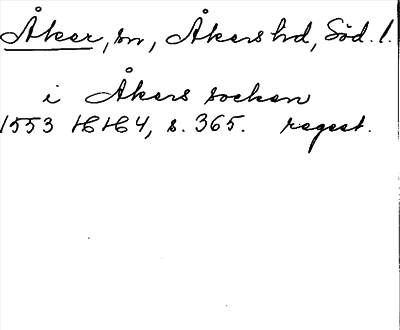 Åker, sn, Åkers hd, Söd. l.
i Åkers socken
1553 HH4, s. 365. regest.